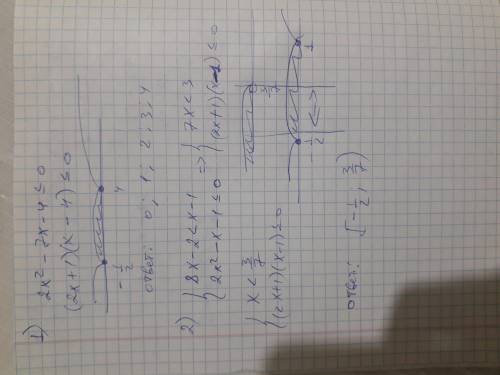 1) 2x² - 7x - 4 ≤ 0
(2x+1)(x-4) ≤ 0
-1/2 4
ответ: 0; 1; 2; 3; 4
2) { 8x-2<x-1 => { 7x<3
{ 2x²-x-1≤0 { (2x+1)(x-1)≤0
{ x<3/7
3/7
{ (2x+1)(x-1)≤0 <=>
-1/2 1
ответ: [-1/2; 3/7)